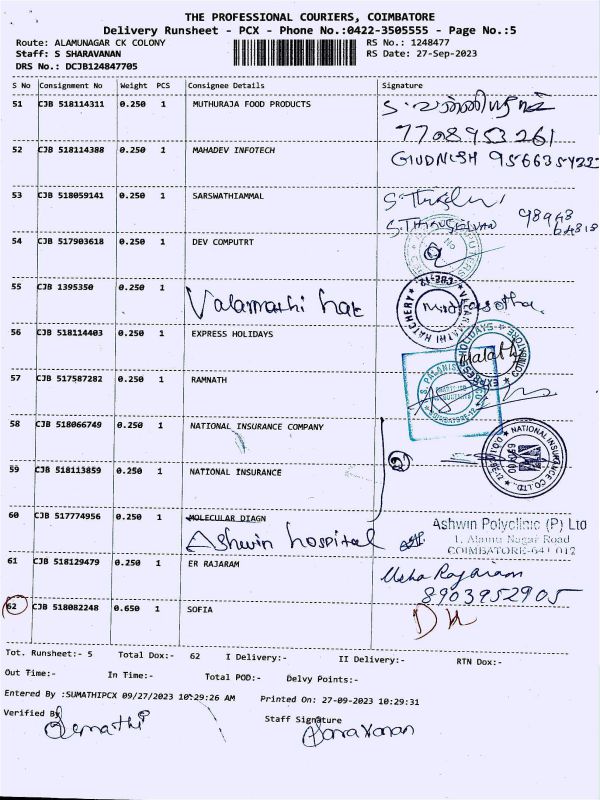 THE PROFESSIONAL COURIERS, COIMBATORE
Delivery Runsheet - PCX - Phone No.:0422-3505555 - Page No.:5
Route: ALAMUNAGAR CK COLONY RS No.: 1248477
Staff: S SHARAVANAN RS Date: 27-Sep-2023
DRS No.: DCJB124847705
S No Consignment No Weight PCS Consignee Details Signature
51 CJB 518114311 0.250 1 MUTHURAJA FOOD PRODUCTS
7708953261
52 CJB 518114388 0.250 1 MAHADEV INFOTECH
53 CJB 518059141 0.250 1 SARSWATHIAMMAL
54 CJB 517903618 0.250 1 DEV COMPUTRT
55 CJB 1395350 0.250 1 Valarmathi hat
VALARMATHI HATCHERY
56 CJB 518114403 0.250 1 EXPRESS HOLIDAYS Malathi
EXPRESS HOLIDAYS
57 CJB 517587282 0.250 1 RAMNATH
58 CJB 518066749 0.250 1 NATIONAL INSURANCE COMPANY
NATIONAL INSURANCE CO.LTD.
59 CJB 518113859 0.250 1 NATIONAL INSURANCE
60 CJB 517774956 0.250 1 MOLECULAR DIAGN
Ashwin hospital
Ashwin Polyclinic (P) Ltd
1, Alamu Nagar Road
COIMBATORE-641 012
61 CJB 518129479 0.250 1 ER RAJARAM Usha Rajaram
8903952905
62 CJB 518082248 0.650 1 SOFIA
Tot. Runsheet:- 5 Total Dox:- 62 I Delivery:- II Delivery:- RTN Dox:-
Out Time:- In Time:- Total POD:- Delvy Points:-
Entered By :SUMATHIPCX 09/27/2023 10:29:26 AM Printed On: 27-09-2023 10:29:31
Verified By Staff Signature
Saravanan